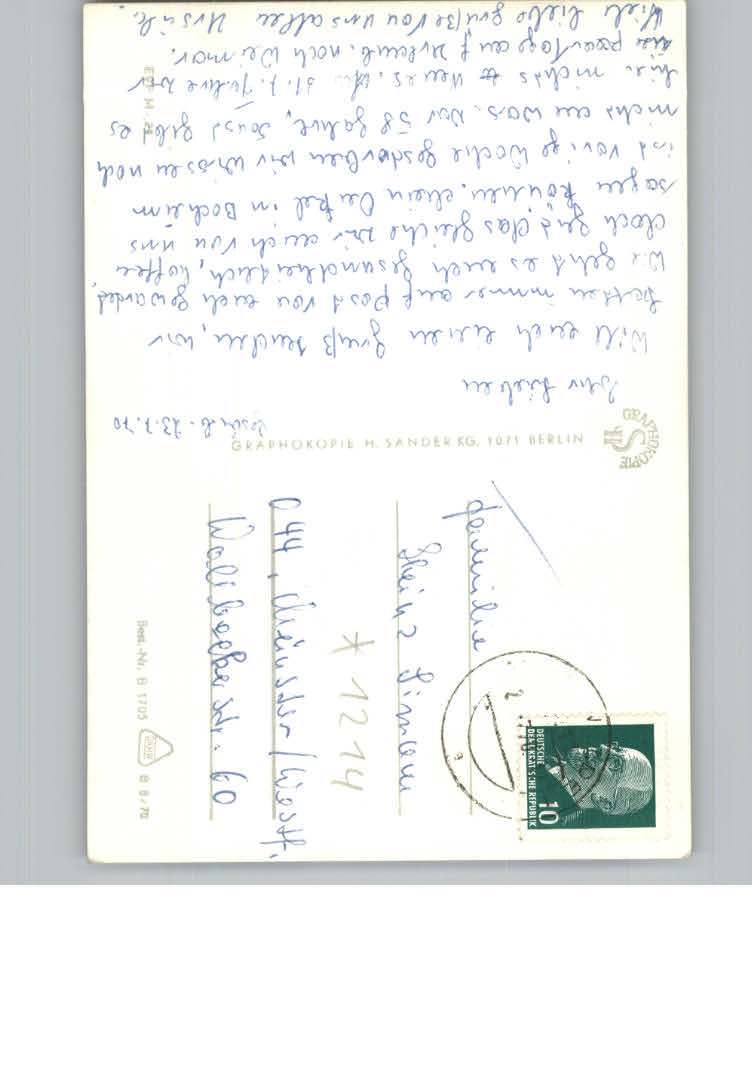 23.7.70
Ihr Lieben
Will euch einen Gruß senden, wir
hatten immer auf Post von euch gewartet,
wie geht es euch gesundheitlich, hoffen
doch gut, das gleiche wir auch von uns
sagen können. mein Onkel in Bochum
ist vorige Woche gestorben wir wissen noch
nicht an was. war 58 Jahre, sonst gibt es
hier nichts neues. 31.7. fahren wir
ein paar Tage auf Urlaub. nach Weimar.
Viele liebe Grüße von uns allen
GRAPHOKOPIE H. SANDER KG, 1071 BERLIN
GRAPHOKOPIE
HS
DEUTSCHE
DEMOKRATISCHE REPUBLIK
10
Familie
Heinz
* 1214
D 44, Münster/Westf.
Wolbecker Str. 60
Best.-Nr. B 1705
© 8/70